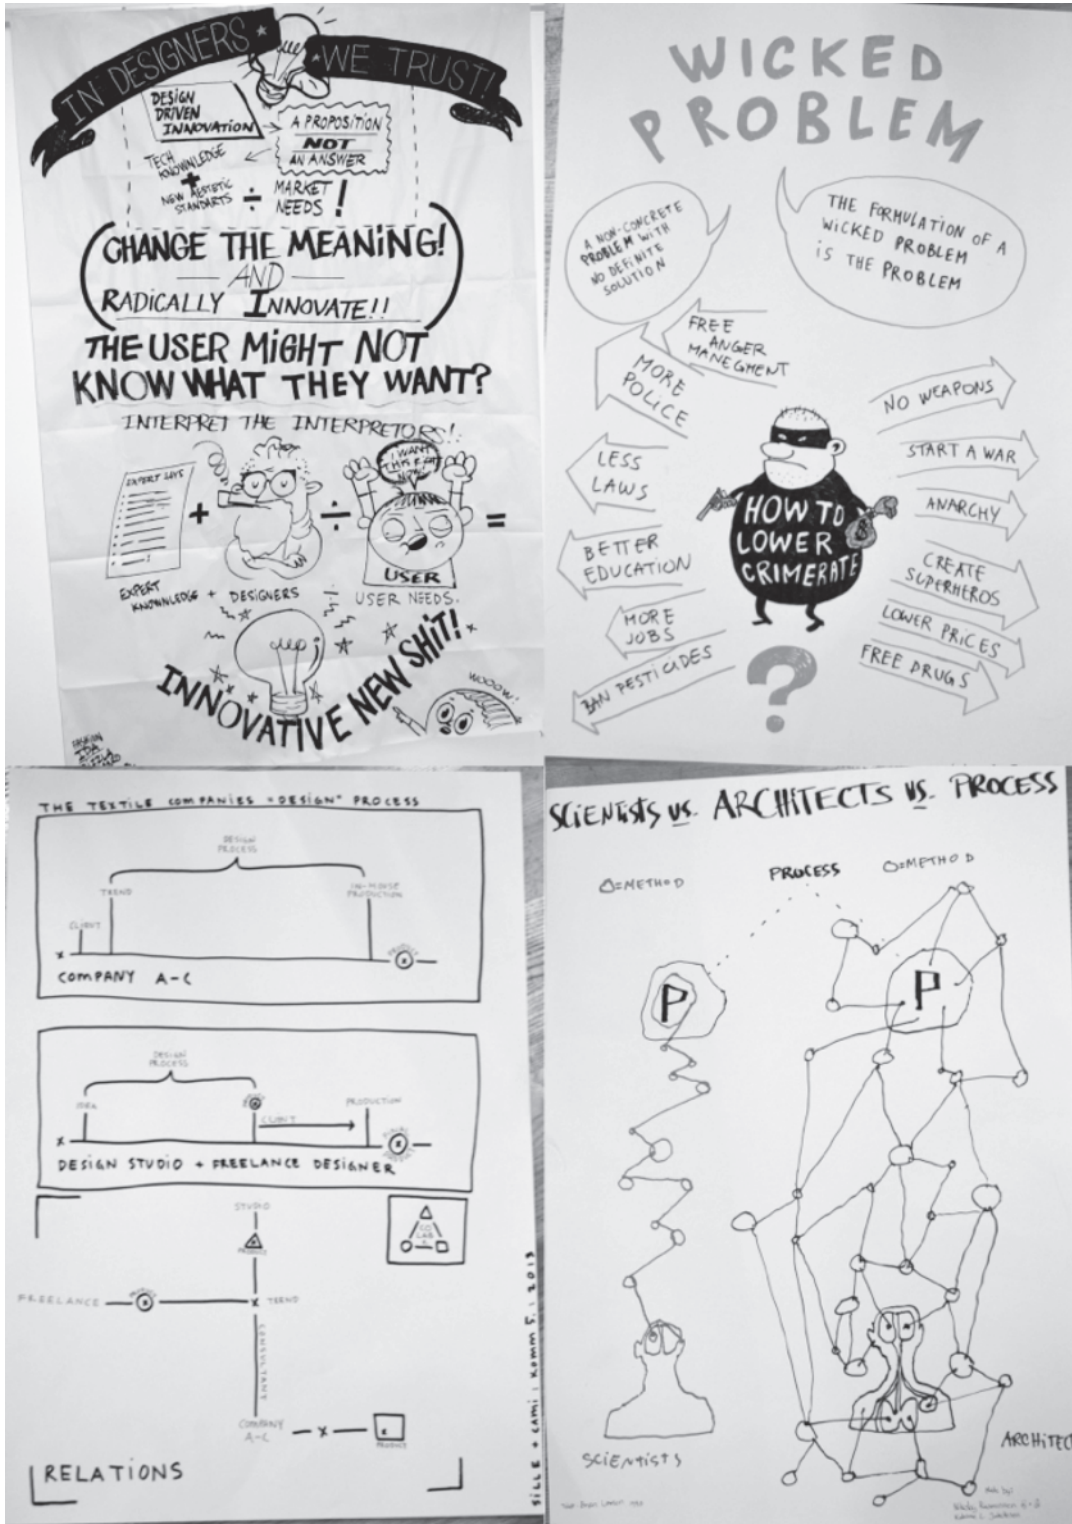 IN DESIGNERS WE TRUST!
DESIGN
DRIVEN
INNOVATION
A PROPOSITION
NOT
AN ANSWER
TECH
KNOWNLEDGE
+
NEW AESTETIC
STANDARTS
÷
MARKET
NEEDS!
CHANGE THE MEANING!
AND
RADICALLY INNOVATE!!
THE USER MIGHT NOT
KNOW WHAT THEY WANT?
INTERPRET THE INTERPRETORS!
EXPERT SAYS
+
÷
I WANT
THIS
NOW
=
USER
EXPERT
KNOWNLEDGE + DESIGNERS
USER NEEDS.
INNOVATIVE NEW SHIT!
WOOOW!
WICKED
PROBLEM
A NON-CONCRETE
PROBLEM WITH
NO DEFINITE
SOLUTION
THE FORMULATION OF A
WICKED PROBLEM
IS THE PROBLEM
FREE
ANGER
MANEGMENT
MORE
POLICE
LESS
LAWS
BETTER
EDUCATION
MORE
JOBS
BAN PESTICIDES
HOW TO
LOWER
CRIMERATE
?
NO WEAPONS
START A WAR
ANARCHY
CREATE
SUPERHEROS
LOWER PRICES
FREE DRUGS
THE TEXTILE COMPANIES "DESIGN" PROCESS
DESIGN
PROCESS
CLIENT
TREND
IN-HOUSE
PRODUCTION
PRODUCT
COMPANY A-C
DESIGN
PROCESS
IDEA
CLIENT
PRODUCTION
DESIGN STUDIO + FREELANCE DESIGNER
STUDIO
PRODUCT
CO
LAB
FREELANCE
PRODUCT
TREND
CONSULTANT
COMPANY
A-C
PRODUCT
RELATIONS
SILLE + CAMI | KOMM 5. | 2013
SCIENTISTS VS. ARCHITECTS VS. PROCESS
=METHOD
PROCESS
=METHOD
P
P
SCIENTISTS
ARCHITECT